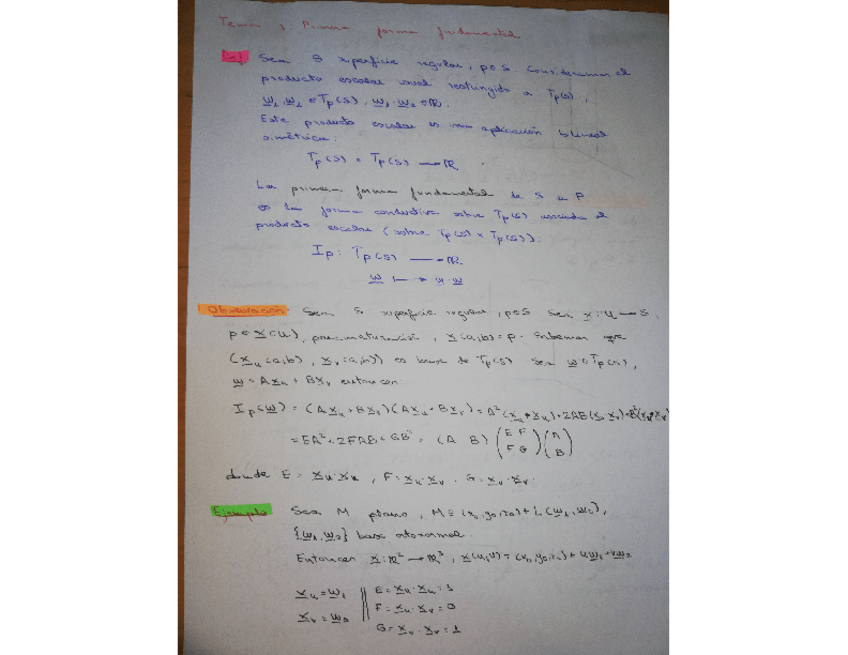 Tema 3: Primera forma fundamental
Def Sea S superficie regular, p∈S. Consideramos el
producto escalar usual restringido a Tp(S),
w₁, w₂ ∈ Tp(S), w₁·w₂ ∈ ℝ.
Este producto escalar es una aplicación bilineal
simétrica:
Tp(S) × Tp(S) → ℝ
La primera forma fundamental de S en P
es la forma cuadrática sobre Tp(S) asociada al
producto escalar (sobre Tp(S) × Tp(S)).
Ip: Tp(S) → ℝ
w ↦ w·w
Observación: Sea S superficie regular, p∈S. Sea x: U → S,
p ∈ x(U), parametrización, x(a,b) = p. Sabemos que
(x_u(a,b), x_v(a,b)) es base de Tp(S). Sea w ∈ Tp(S),
w = Ax_u + Bx_v entonces:
Ip(w) = (Ax_u + Bx_v)(Ax_u + Bx_v) = A²(x_u·x_u) + 2AB(x_u·x_v) + B²(x_v·x_v)
= EA² + 2FAB + GB² = (A B) (E F / F G) (A / B)
donde E = x_u·x_u, F = x_u·x_v, G = x_v·x_v.
Ejemplo Sea M plano, M ≡ (x₀,y₀,z₀) + L(w₁,w₂),
{w₁,w₂} base ortonormal.
Entonces x: ℝ² → ℝ³, x(u,v) = (x₀,y₀,z₀) + uw₁ + vw₂
x_u = w₁ || E = x_u·x_u = 1
F = x_u·x_v = 0
x_v = w₂
G = x_v·x_v = 1